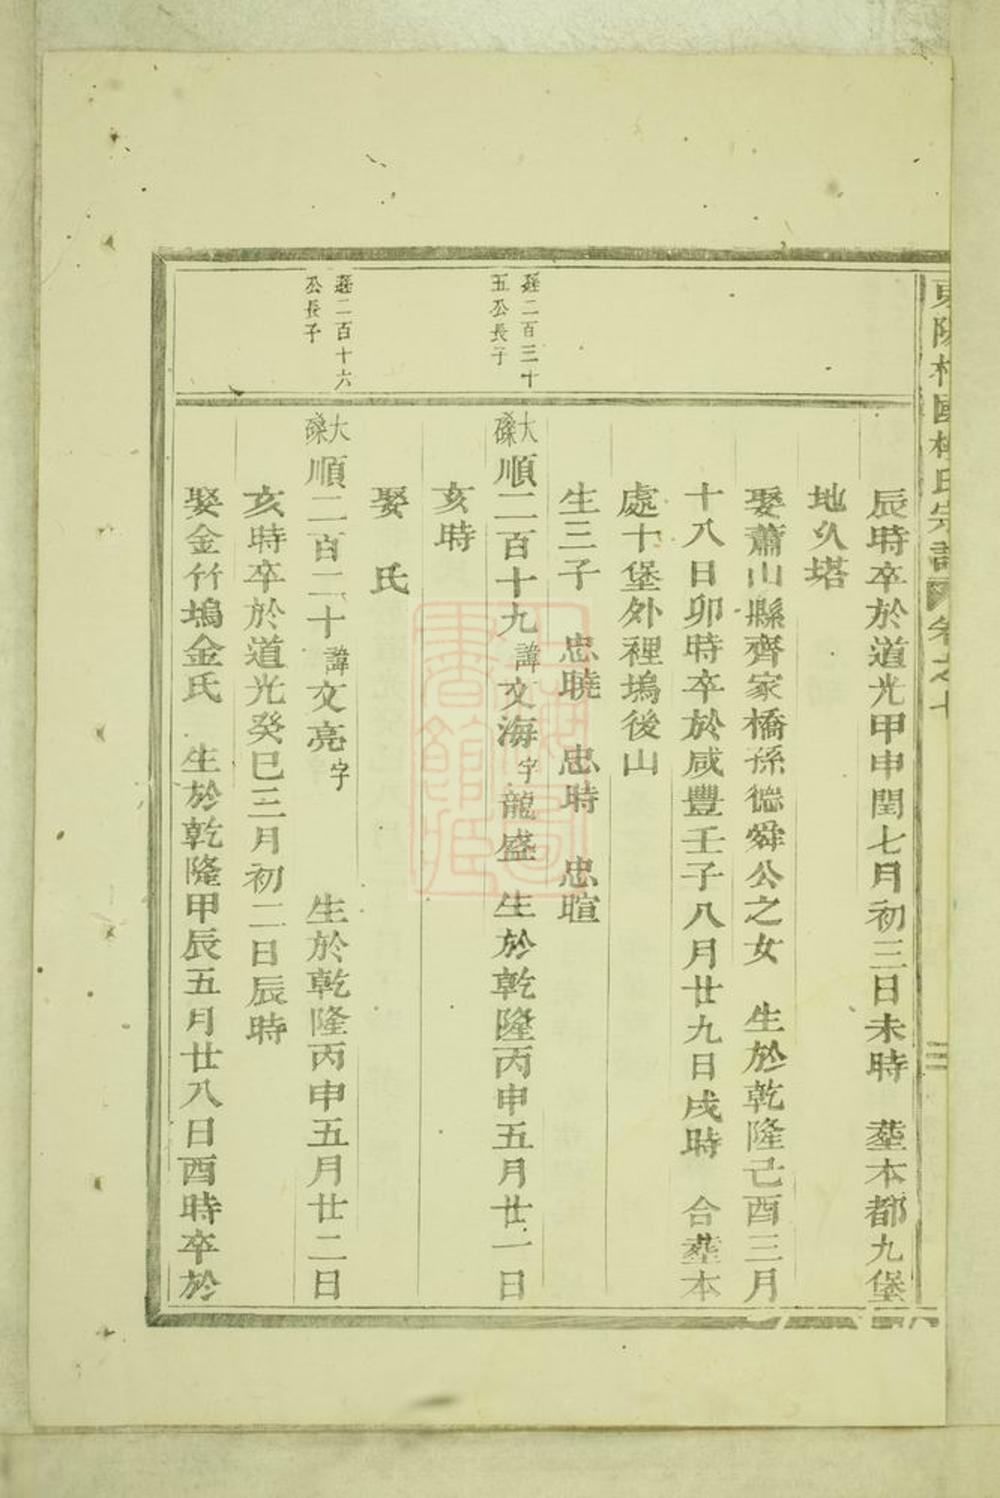 辰時卒於道光甲申閏七月初三日未時　塟本都九堡
地久塔
娶蕭山縣齊家橋孫德舜公之女　生於乾隆己酉三月
十八日卯時卒於咸豐壬子八月廿九日戌時　合塟本
處十堡外裡塢後山
生三子　忠曉　忠時　忠暄
二百三十
五公長子
大磉順二百十九諱文海字龍盛　生於乾隆丙申五月廿一日
亥時
娶　氏
二百十六
公長子
大磉順二百二十諱文亮字　生於乾隆丙申五月廿二日
亥時卒於道光癸巳三月初二日辰時
娶金竹塢金氏　生於乾隆甲辰五月廿八日酉時卒於